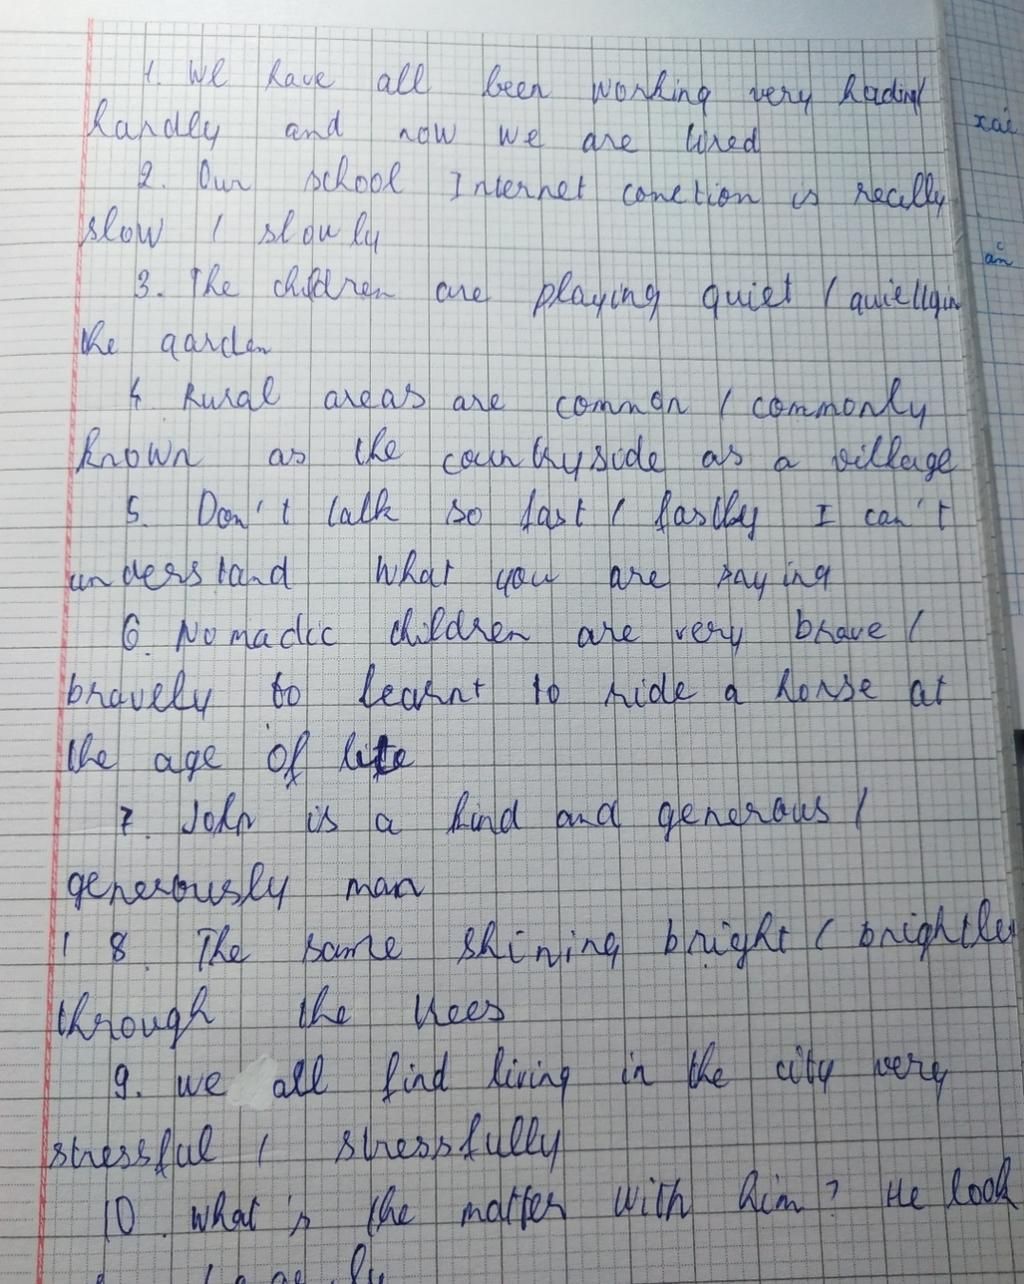 1. We have all been working very hading/
hardly and now we are tired
2. Our school Internet conection is really
slow / slowly
3. The children are playing quiet / quietlyin
the garden
4 Rural areas are common / commonly
known as the countryside as a village
5. Don't talk so fast / fastly I can't
understand what you are saying
6. Nomadic children are very brave /
bravely to learnt to ride a horse at
the age of
7. John is a kind and generous /
generously man
8. The same shining bright / brightly
through the trees
9. we all find living in the city very
stressful / stressfully
10. what's the matter with him? He look
xác
ăn